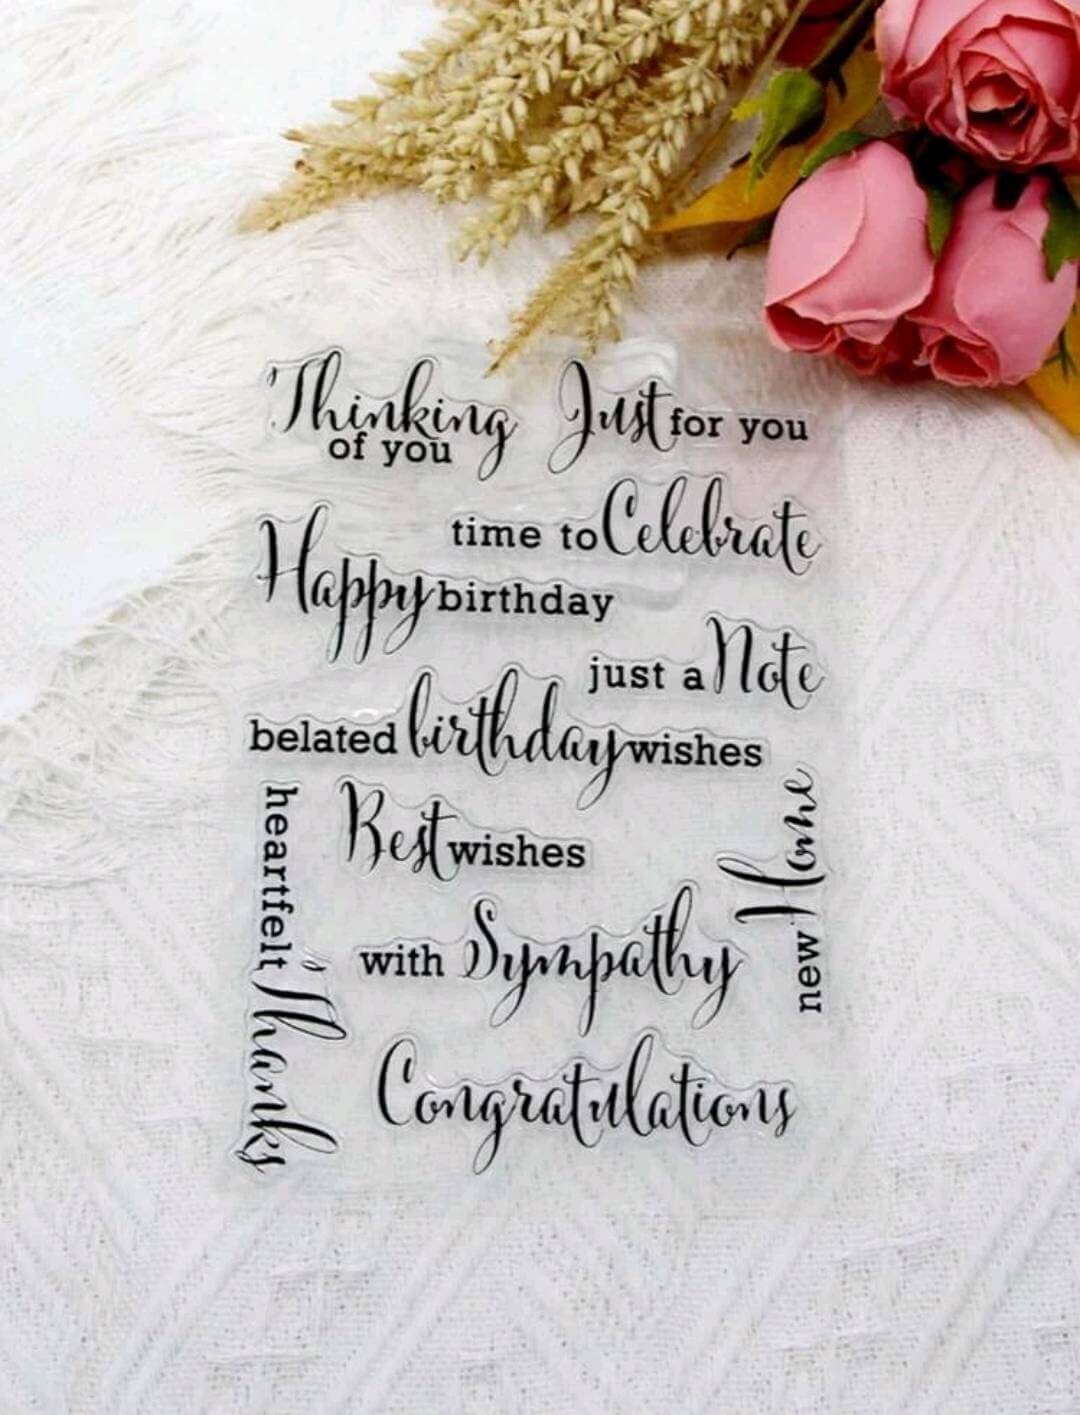 Thinking
of you
Just for you
time to Celebrate
Happy birthday
just a Note
belated birthday wishes
Best wishes
new Home
heartfelt Thanks
with Sympathy
Congratulations